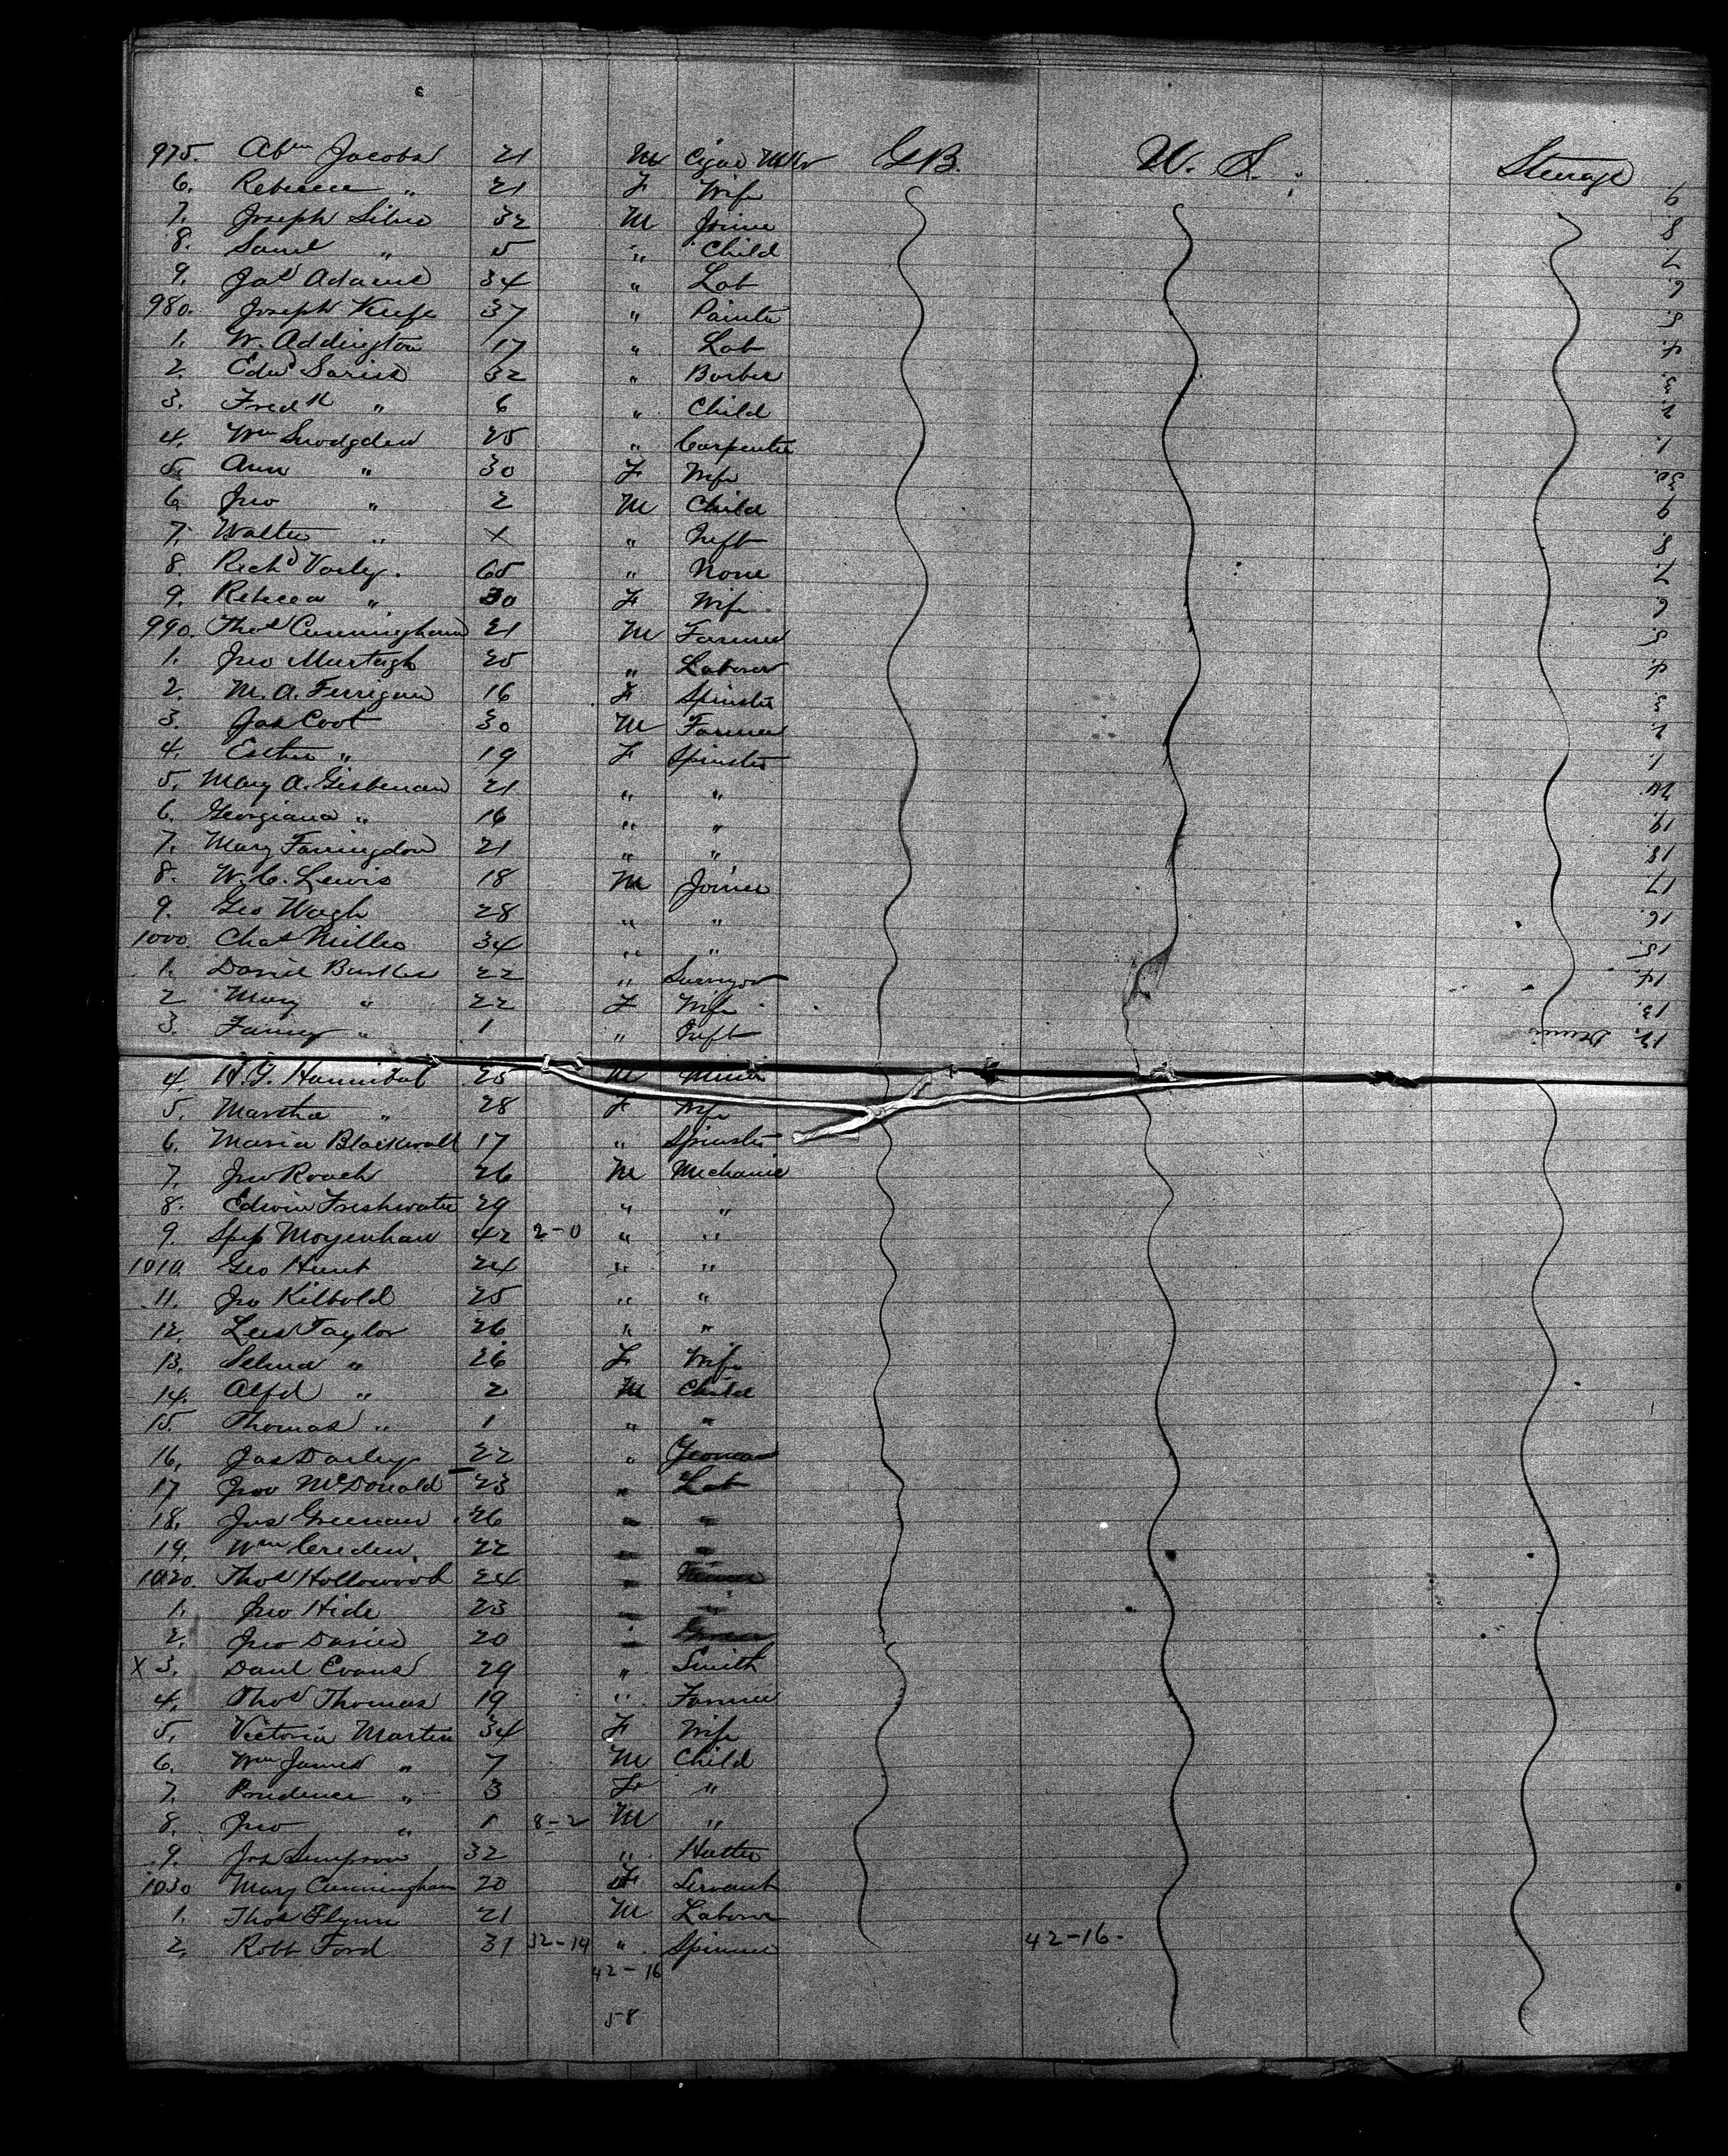 975. Abm Jacobs 21 M Cigar Mkr G.B. U.S. Steerage
6. Rebecca " 21 F Wife
7. Joseph 32 M Joiner
8. Saml " 5 " Child
9. Jas Adams 34 " Lab
980. Joseph Keefe 37 " Painter
1. W. Addington 17 " Lab
2. Edwd 32 " Barber
3. Fredk " 6 " Child
4. Wm Snodgden 25 " Carpenter
5. Ann " 30 F Wife
6. Jno " 2 M Child
7. Walter " X " Inft
8. Richd Varley. 65 " None
9. Rebecca " 30 F Wife
990. Thos Cunningham 21 M Farmer
1. Jno Murtagh 25 " Laborer
2. M. A. Ferrigan 16 F Spinster
3. Jas Coot 30 M Farmer
4. Esther " 19 F Spinster
5. Mary A. 21 " "
6. Georgiana " 16 " "
7. Mary Farringdon 21 " "
8. W. C. Lewis 18 M Joiner
9. Geo Wagh 28 " "
1000 Chas Miller 34 " "
1. Daniel 22 " Surveyor
2 Mary " 22 F Wife
3. Fanny " 1 " Inft
4. H. G. Hannibal 25 M Miner
5. Martha " 28 F Wife
6. Maria Blackwall 17 " Spinster
7. Jno Roach 26 M Mechanic
8. Edwin Freshwater 29 " "
9. Moyenhan 42 2-0 " "
1010 Geo Hunt 24 " "
11. Jno Kilbold 25 " "
12. Lees Taylor 26 " "
13. Selina " 26 F Wife
14. Alfd " 2 M Child
15. Thomas " 1 " "
16. Jas Darley 22 " Yeoman
17 Jno McDonald 23 " Lab
18. Jas Greenan 26 " "
19. Wm Creden. 22 " "
1020. Thos Hollowood 24 "
1. Jno Hide 23 " "
2. Jno Davies 20 "
X 3. Danl Evans 29 " Smith
4. Thos Thomas 19 " Farmer
5. Victoria Martin 34 F Wife
6. Wm James " 7 M Child
7. Prudence " 3 F "
8. Jno " 1 8-2 M "
9. Jos Simpson 32 " Hatter
1030 Mary Cunningham 20 F Servant
1. Thos Flynn 21 M Laborer
2. Robt Ford 31 32-14 " Spinner 42-16-
42-16
58